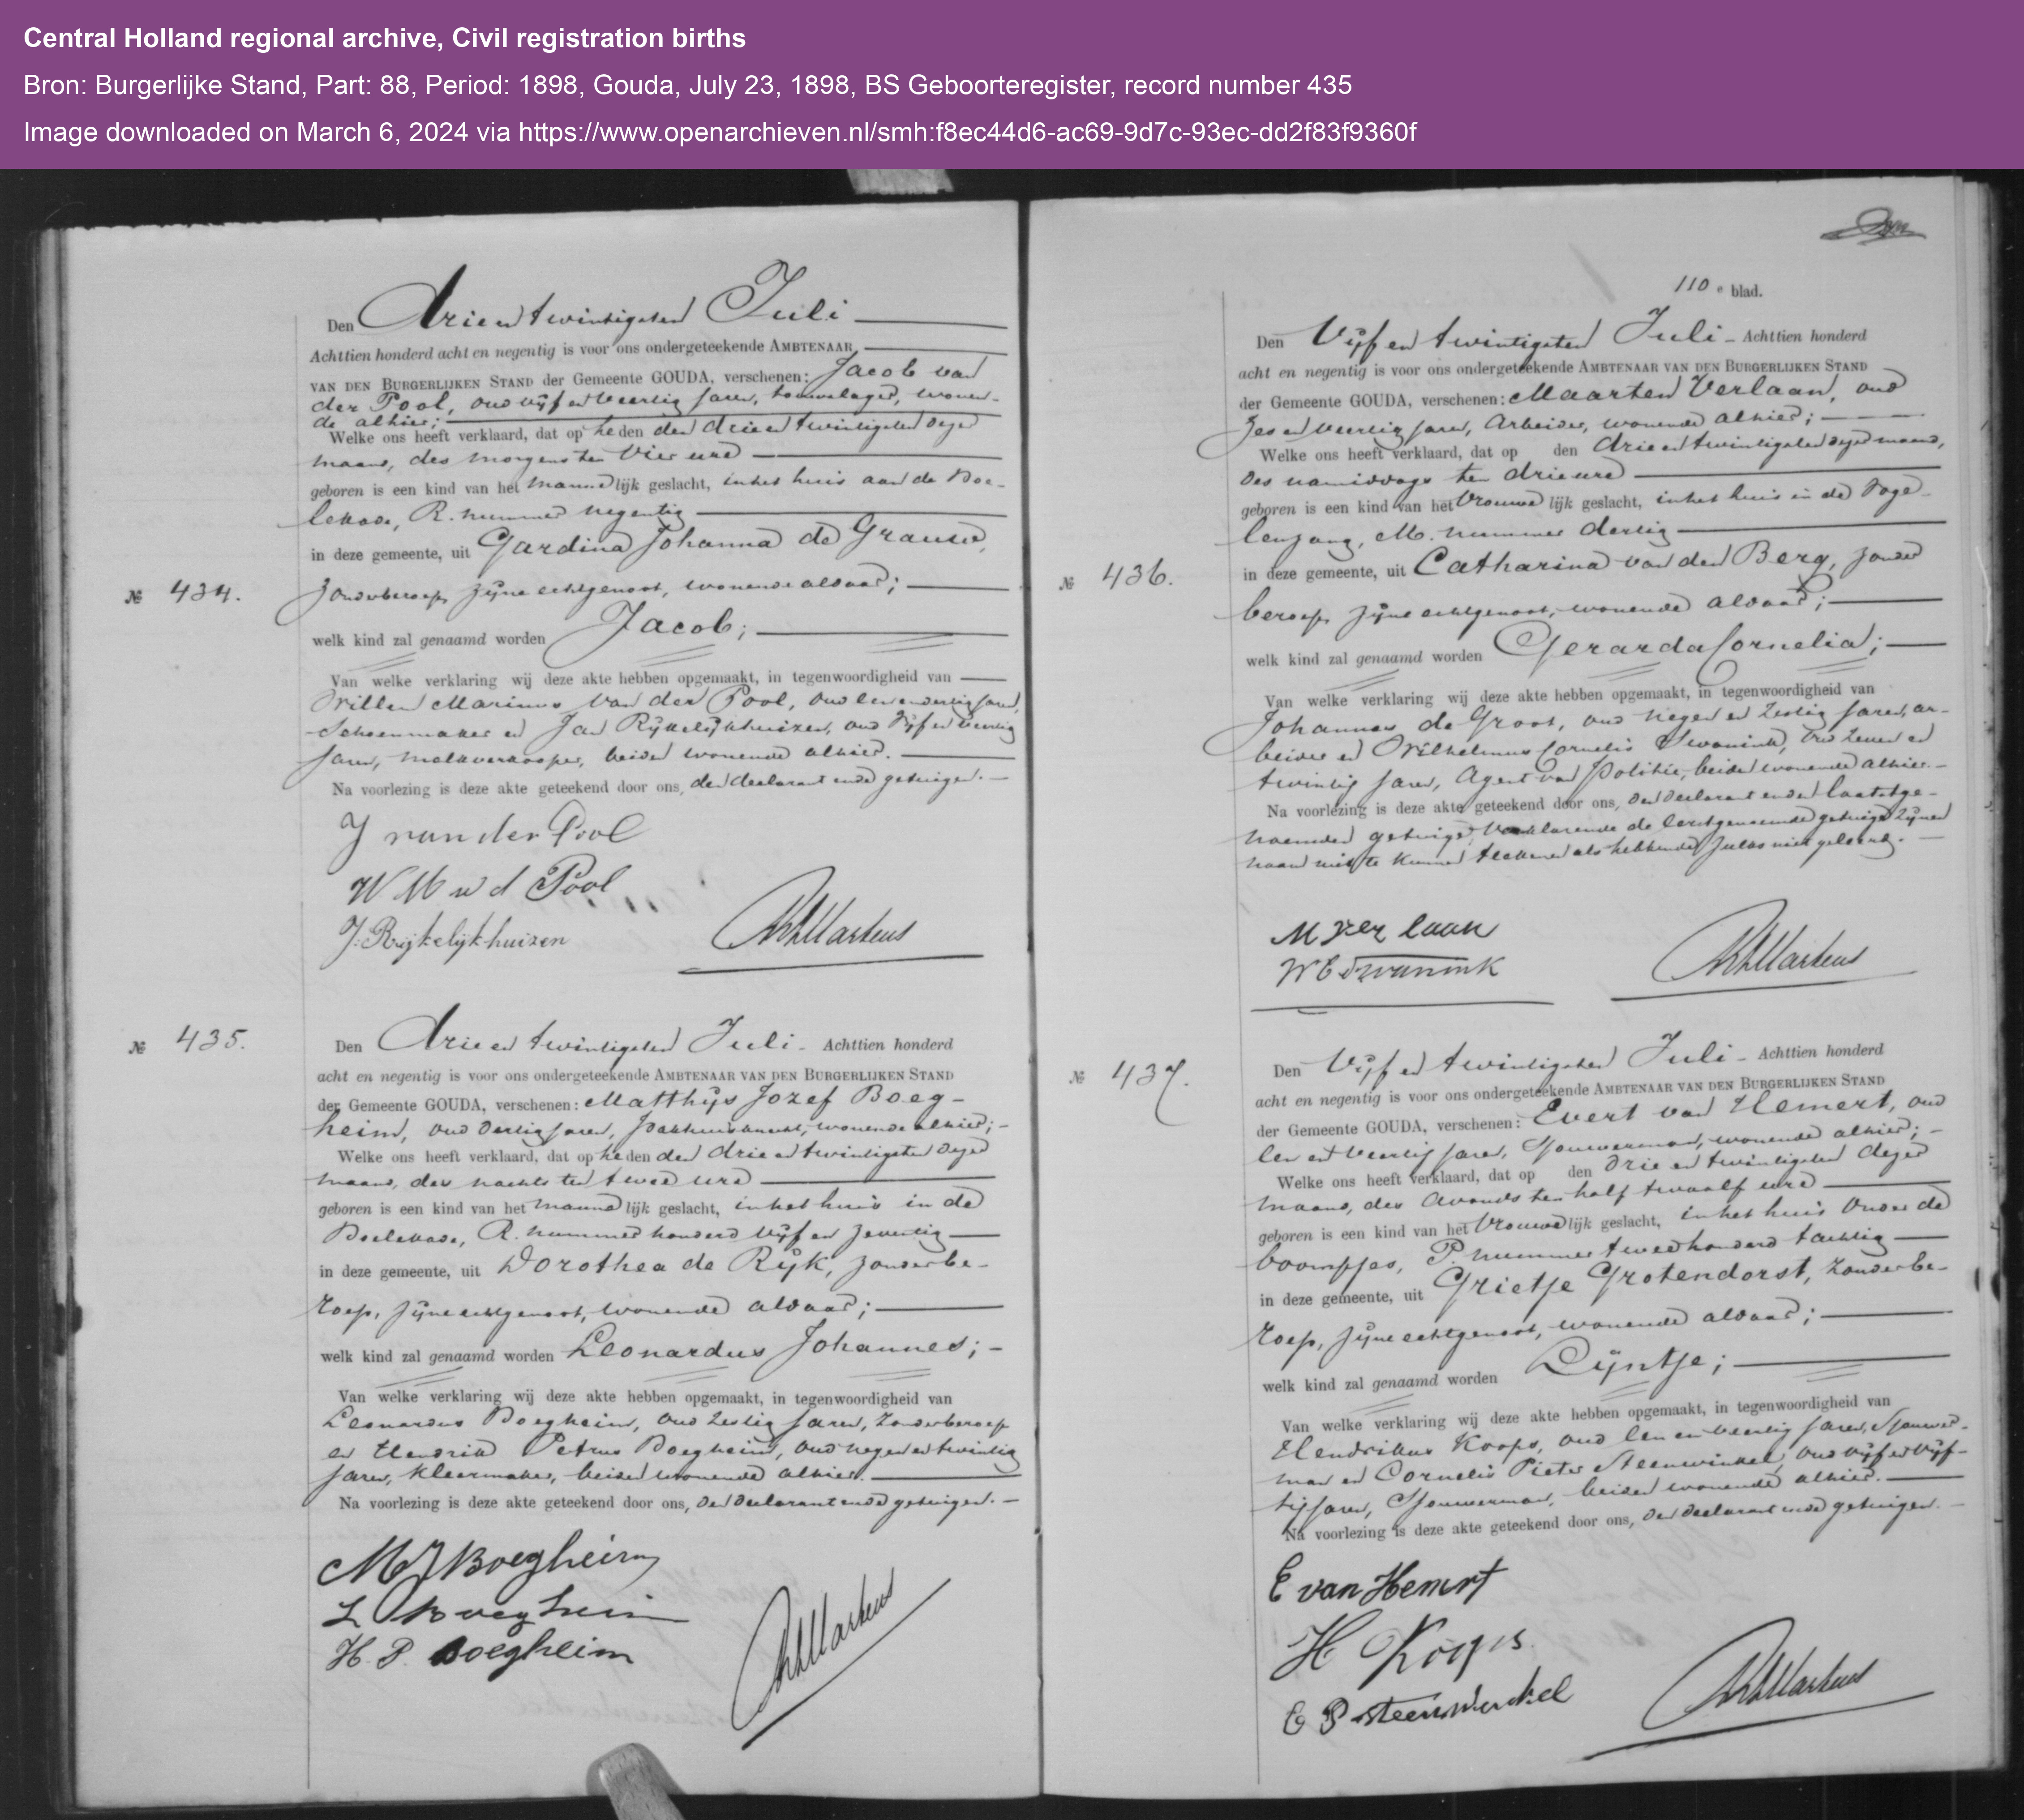 Central Holland regional archive, Civil registration births
Bron: Burgerlijke Stand, Part: 88, Period: 1898, Gouda, July 23, 1898, BS Geboorteregister, record number 435
Image downloaded on March 6, 2024 via https://www.openarchieven.nl/smh:f8ec44d6-ac69-9d7c-93ec-dd2f83f9360f
Den Drie en twintigsten Juli
Achttien honderd acht en negentig is voor ons ondergeteekende AMBTENAAR
VAN DEN BURGERLIJKEN STAND der Gemeente GOUDA, verschenen: Jacob van
der Pool, oud vijf en veertig jaren, touwslager, wonen-
de alhier;
Welke ons heeft verklaard, dat op heden den drie en twintigsten dezer
maand, des morgens ten vier ure
geboren is een kind van het mannelijk geslacht, in het huis aan de Boe-
lekade, R. nummer negentig
in deze gemeente, uit Gardina Johanna de Grauw,
№ 434. zonder beroep, zijne echtgenoot, wonende aldaar;
welk kind zal genaamd worden Jacob;
Van welke verklaring wij deze akte hebben opgemaakt, in tegenwoordigheid van
Willem Marinus van der Pool, oud een en dertig jaren,
schoenmaker en Jan Rijkelijkhuizen, oud vijf en veertig
jaren, melkverkooper, beiden wonende alhier.
Na voorlezing is deze akte geteekend door ons, den declarant en de getuigen.
J van der Pool
W M v d Pool
J. Rijkelijkhuizen
Martens
№ 435.
Den Drie en twintigsten Juli - Achttien honderd
acht en negentig is voor ons ondergeteekende AMBTENAAR VAN DEN BURGERLIJKEN STAND
der Gemeente GOUDA, verschenen: Matthijs Jozef Boeg-
heim, oud dertig jaren, pakhuisknecht, wonende alhier;
Welke ons heeft verklaard, dat op heden den drie en twintigsten dezer
maand, des nachts ten twee ure
geboren is een kind van het mannelijk geslacht, in het huis in de
Boelekade, R. nummer honderd vijf en zeventig
in deze gemeente, uit Dorothea de Rijk, zonder be-
roep, zijne echtgenoot, wonende aldaar;
welk kind zal genaamd worden Leonardus Johannes;
Van welke verklaring wij deze akte hebben opgemaakt, in tegenwoordigheid van
Leonardus Boegheim, oud zestig jaren, zonder beroep
en Hendrik Petrus Boegheim, oud negen en twintig
jaren, kleermaker, beiden wonende alhier.
Na voorlezing is deze akte geteekend door ons, den declarant en de getuigen.
M J Boegheim
L Boegheim
H. P. Boegheim
Martens
110e blad.
Den Vijf en twintigsten Juli - Achttien honderd
acht en negentig is voor ons ondergeteekende AMBTENAAR VAN DEN BURGERLIJKEN STAND
der Gemeente GOUDA, verschenen: Maarten Verlaan, oud
zes en veertig jaren, Arbeider, wonende alhier;
Welke ons heeft verklaard, dat op den drie en twintigsten dezer maand,
des namiddags ten drie ure
geboren is een kind van het vrouwelijk geslacht, in het huis in de Voge-
lenzang, M. nummer dertig
№ 436. in deze gemeente, uit Catharina van den Berg, zonder
beroep, zijne echtgenoot, wonende aldaar;
welk kind zal genaamd worden Gerarda Cornelia;
Van welke verklaring wij deze akte hebben opgemaakt, in tegenwoordigheid van
Johannes de Groot, oud negen en zestig jaren, ar-
beider en Wilhelmus Cornelis Zwanink, oud zeven en
twintig jaren, Agent van Politie, beiden wonende alhier.
Na voorlezing is deze akte geteekend door ons, den declarant en den laatstge-
noemden getuige, verklarende de eerstgenoemde getuige zijnen
naam niet te kunnen teekenen als hebbende zulks niet geleerd.
M Verlaan
W C Zwanink
Martens
№ 437.
Den Vijf en twintigsten Juli - Achttien honderd
acht en negentig is voor ons ondergeteekende AMBTENAAR VAN DEN BURGERLIJKEN STAND
der Gemeente GOUDA, verschenen: Evert van Hemert, oud
een en veertig jaren, Sjouwerman, wonende alhier;
Welke ons heeft verklaard, dat op den drie en twintigsten dezer
maand, des avonds ten half twaalf ure
geboren is een kind van het vrouwelijk geslacht, in het huis Onder de
boompjes, P. nummer twee honderd tachtig
in deze gemeente, uit Grietje Grotendorst, zonder be-
roep, zijne echtgenoot, wonende aldaar;
welk kind zal genaamd worden Lijntje;
Van welke verklaring wij deze akte hebben opgemaakt, in tegenwoordigheid van
Hendrikus Koops, oud een en veertig jaren, Sjouwer-
man en Cornelis Pieter Steenwinkel, oud vijf en vijf-
tig jaren, Sjouwerman, beiden wonende alhier.
Na voorlezing is deze akte geteekend door ons, den declarant en de getuigen.
E van Hemert
H Koops
C P Steenwinkel
Martens